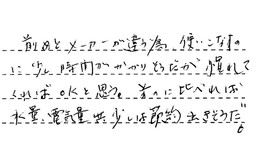 前のとメーカーが違う為、使いこなすの
に少し時間がかかりそうだが慣れて
くればOKと思う。前のに比べれば
水量、電気量共少しは節約出来そうだ。